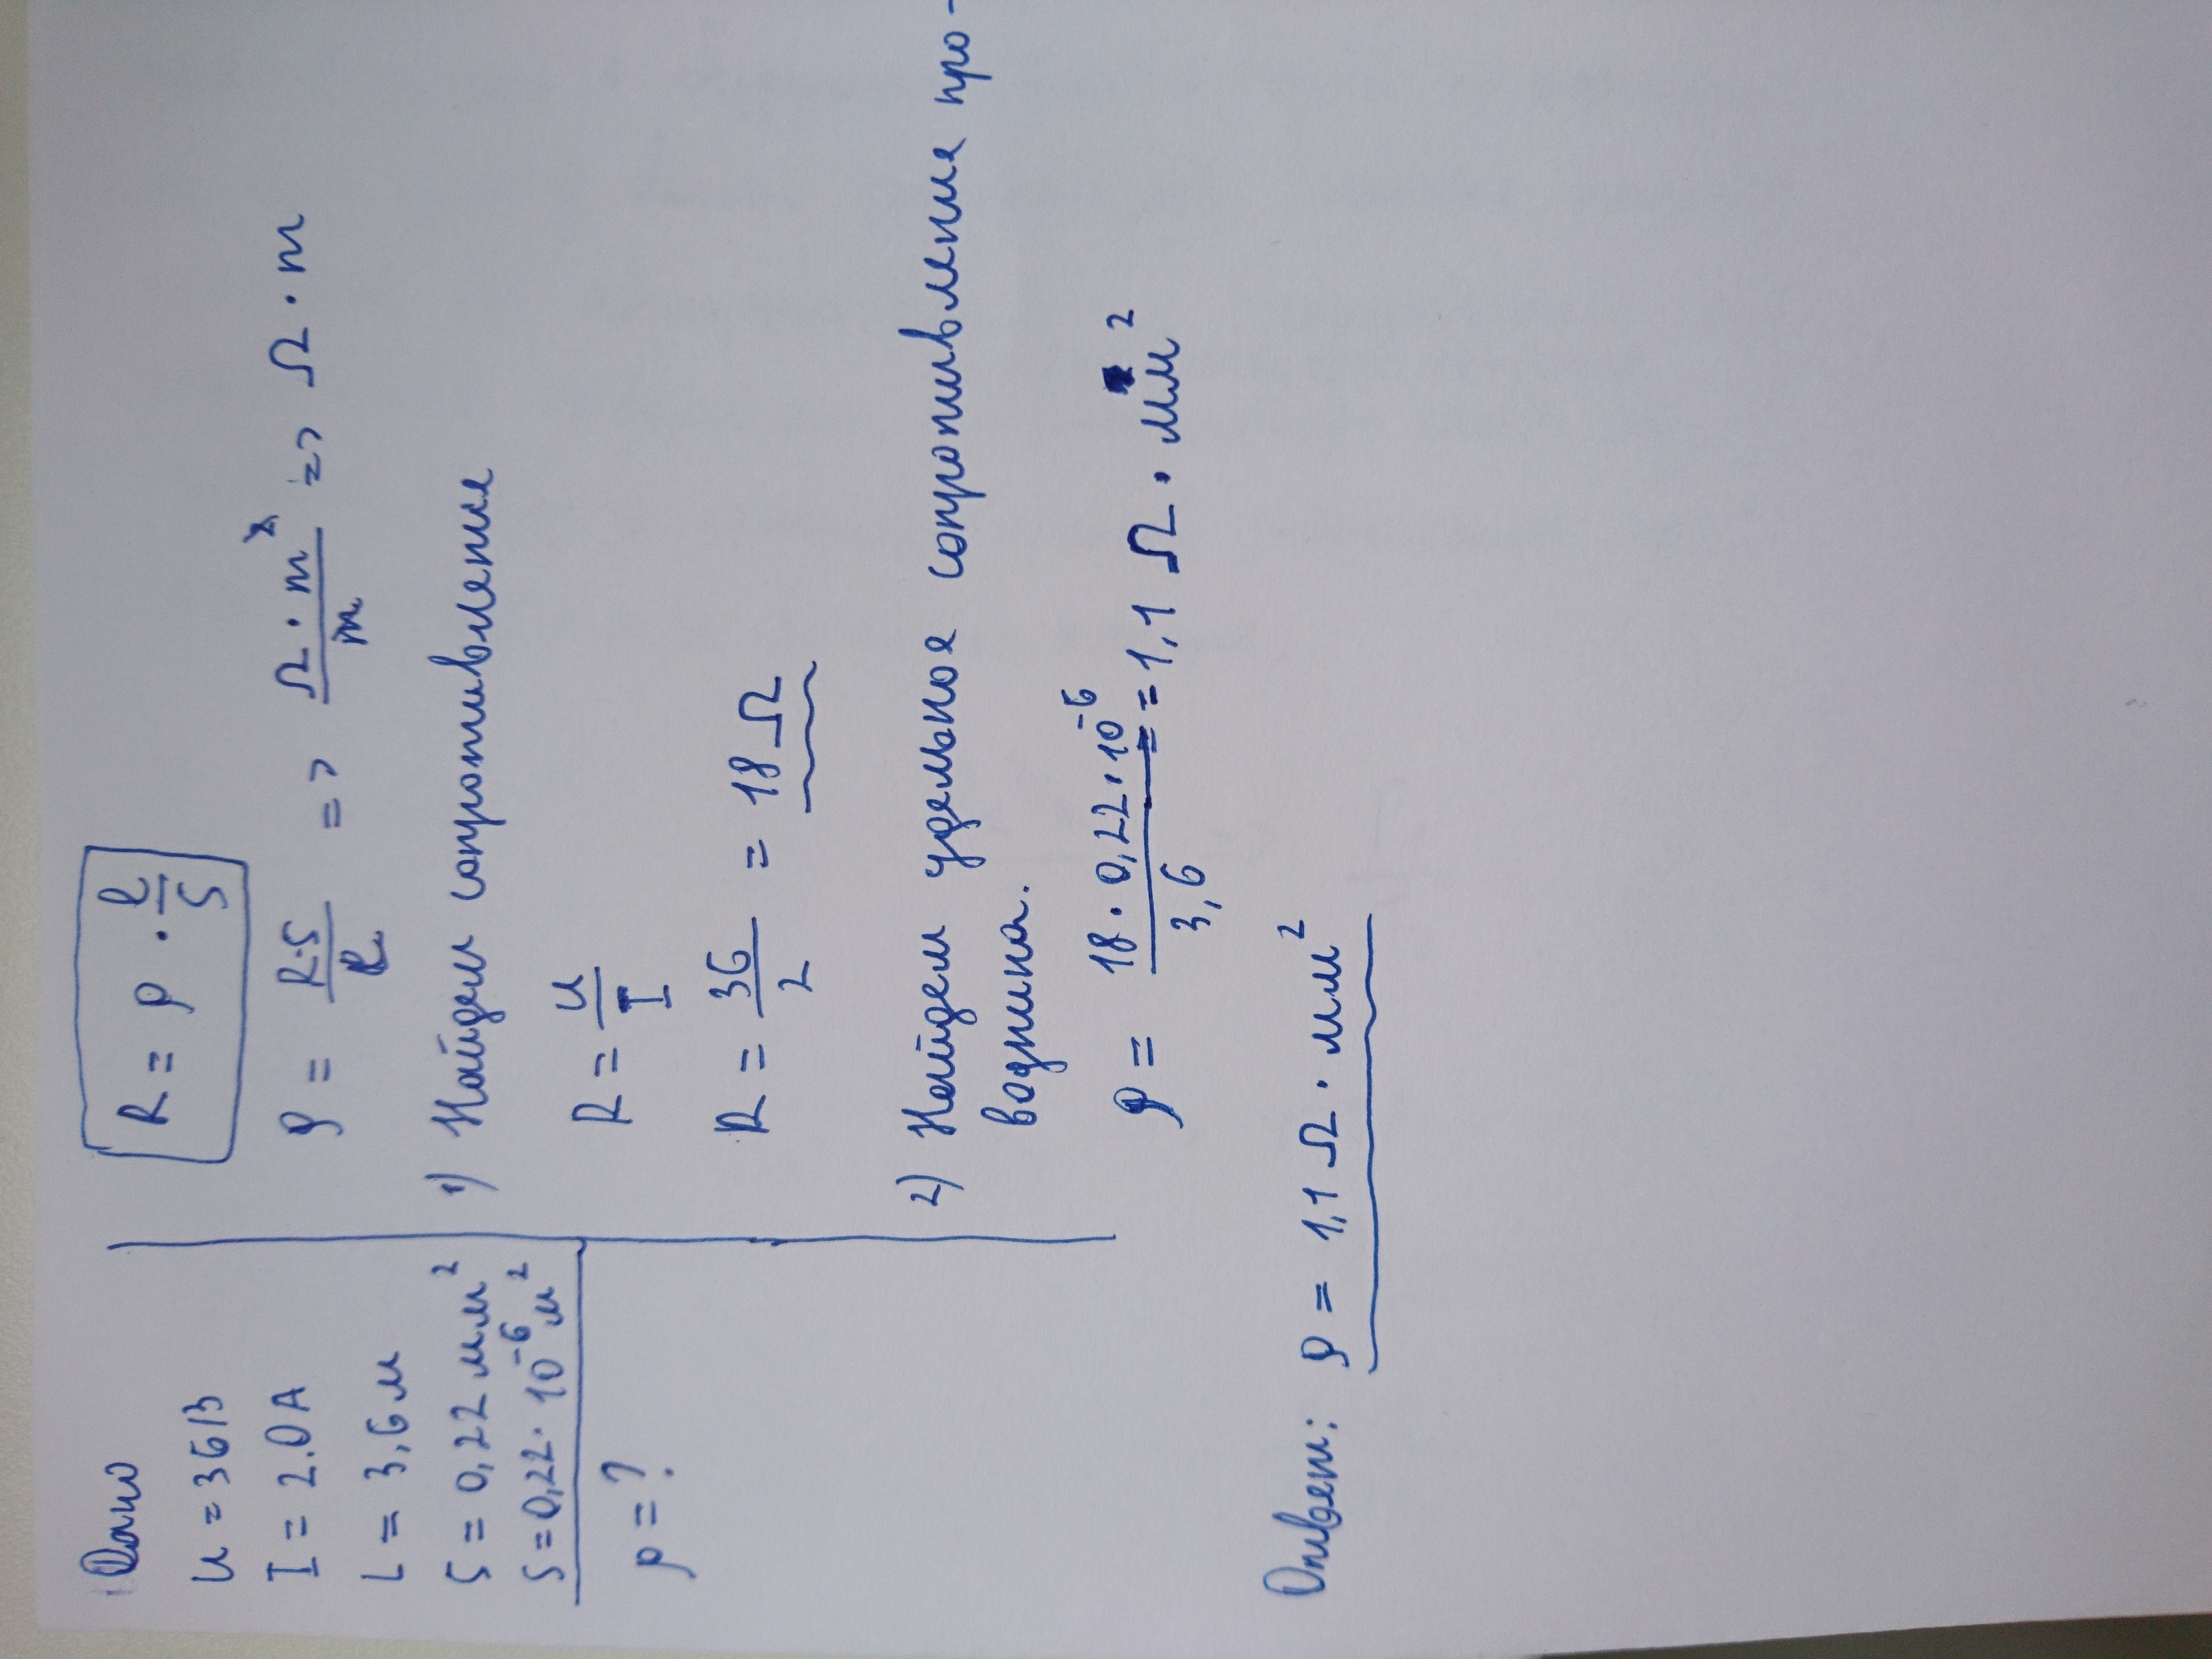 Дано
U = 36 В
I = 2.0 А
L = 3,6 м
S = 0,22 мм²
S = 0,22 · 10⁻⁶ м²
ρ = ?
R = ρ · l/S
ρ = R·S/l => Ω · m²/m => Ω · m
1) Найдем сопротивление
R = U/I
R = 36/2 = 18 Ω
2) Найдем удельное сопротивление про-
водника.
ρ = 18 · 0,22 · 10⁻⁶/3,6 = 1,1 Ω · мм²
Ответ: ρ = 1,1 Ω · мм²